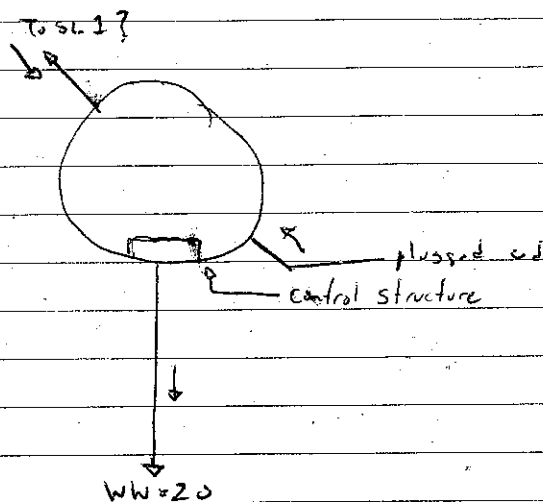 To SL 1?
plugged end
control structure
WW=20